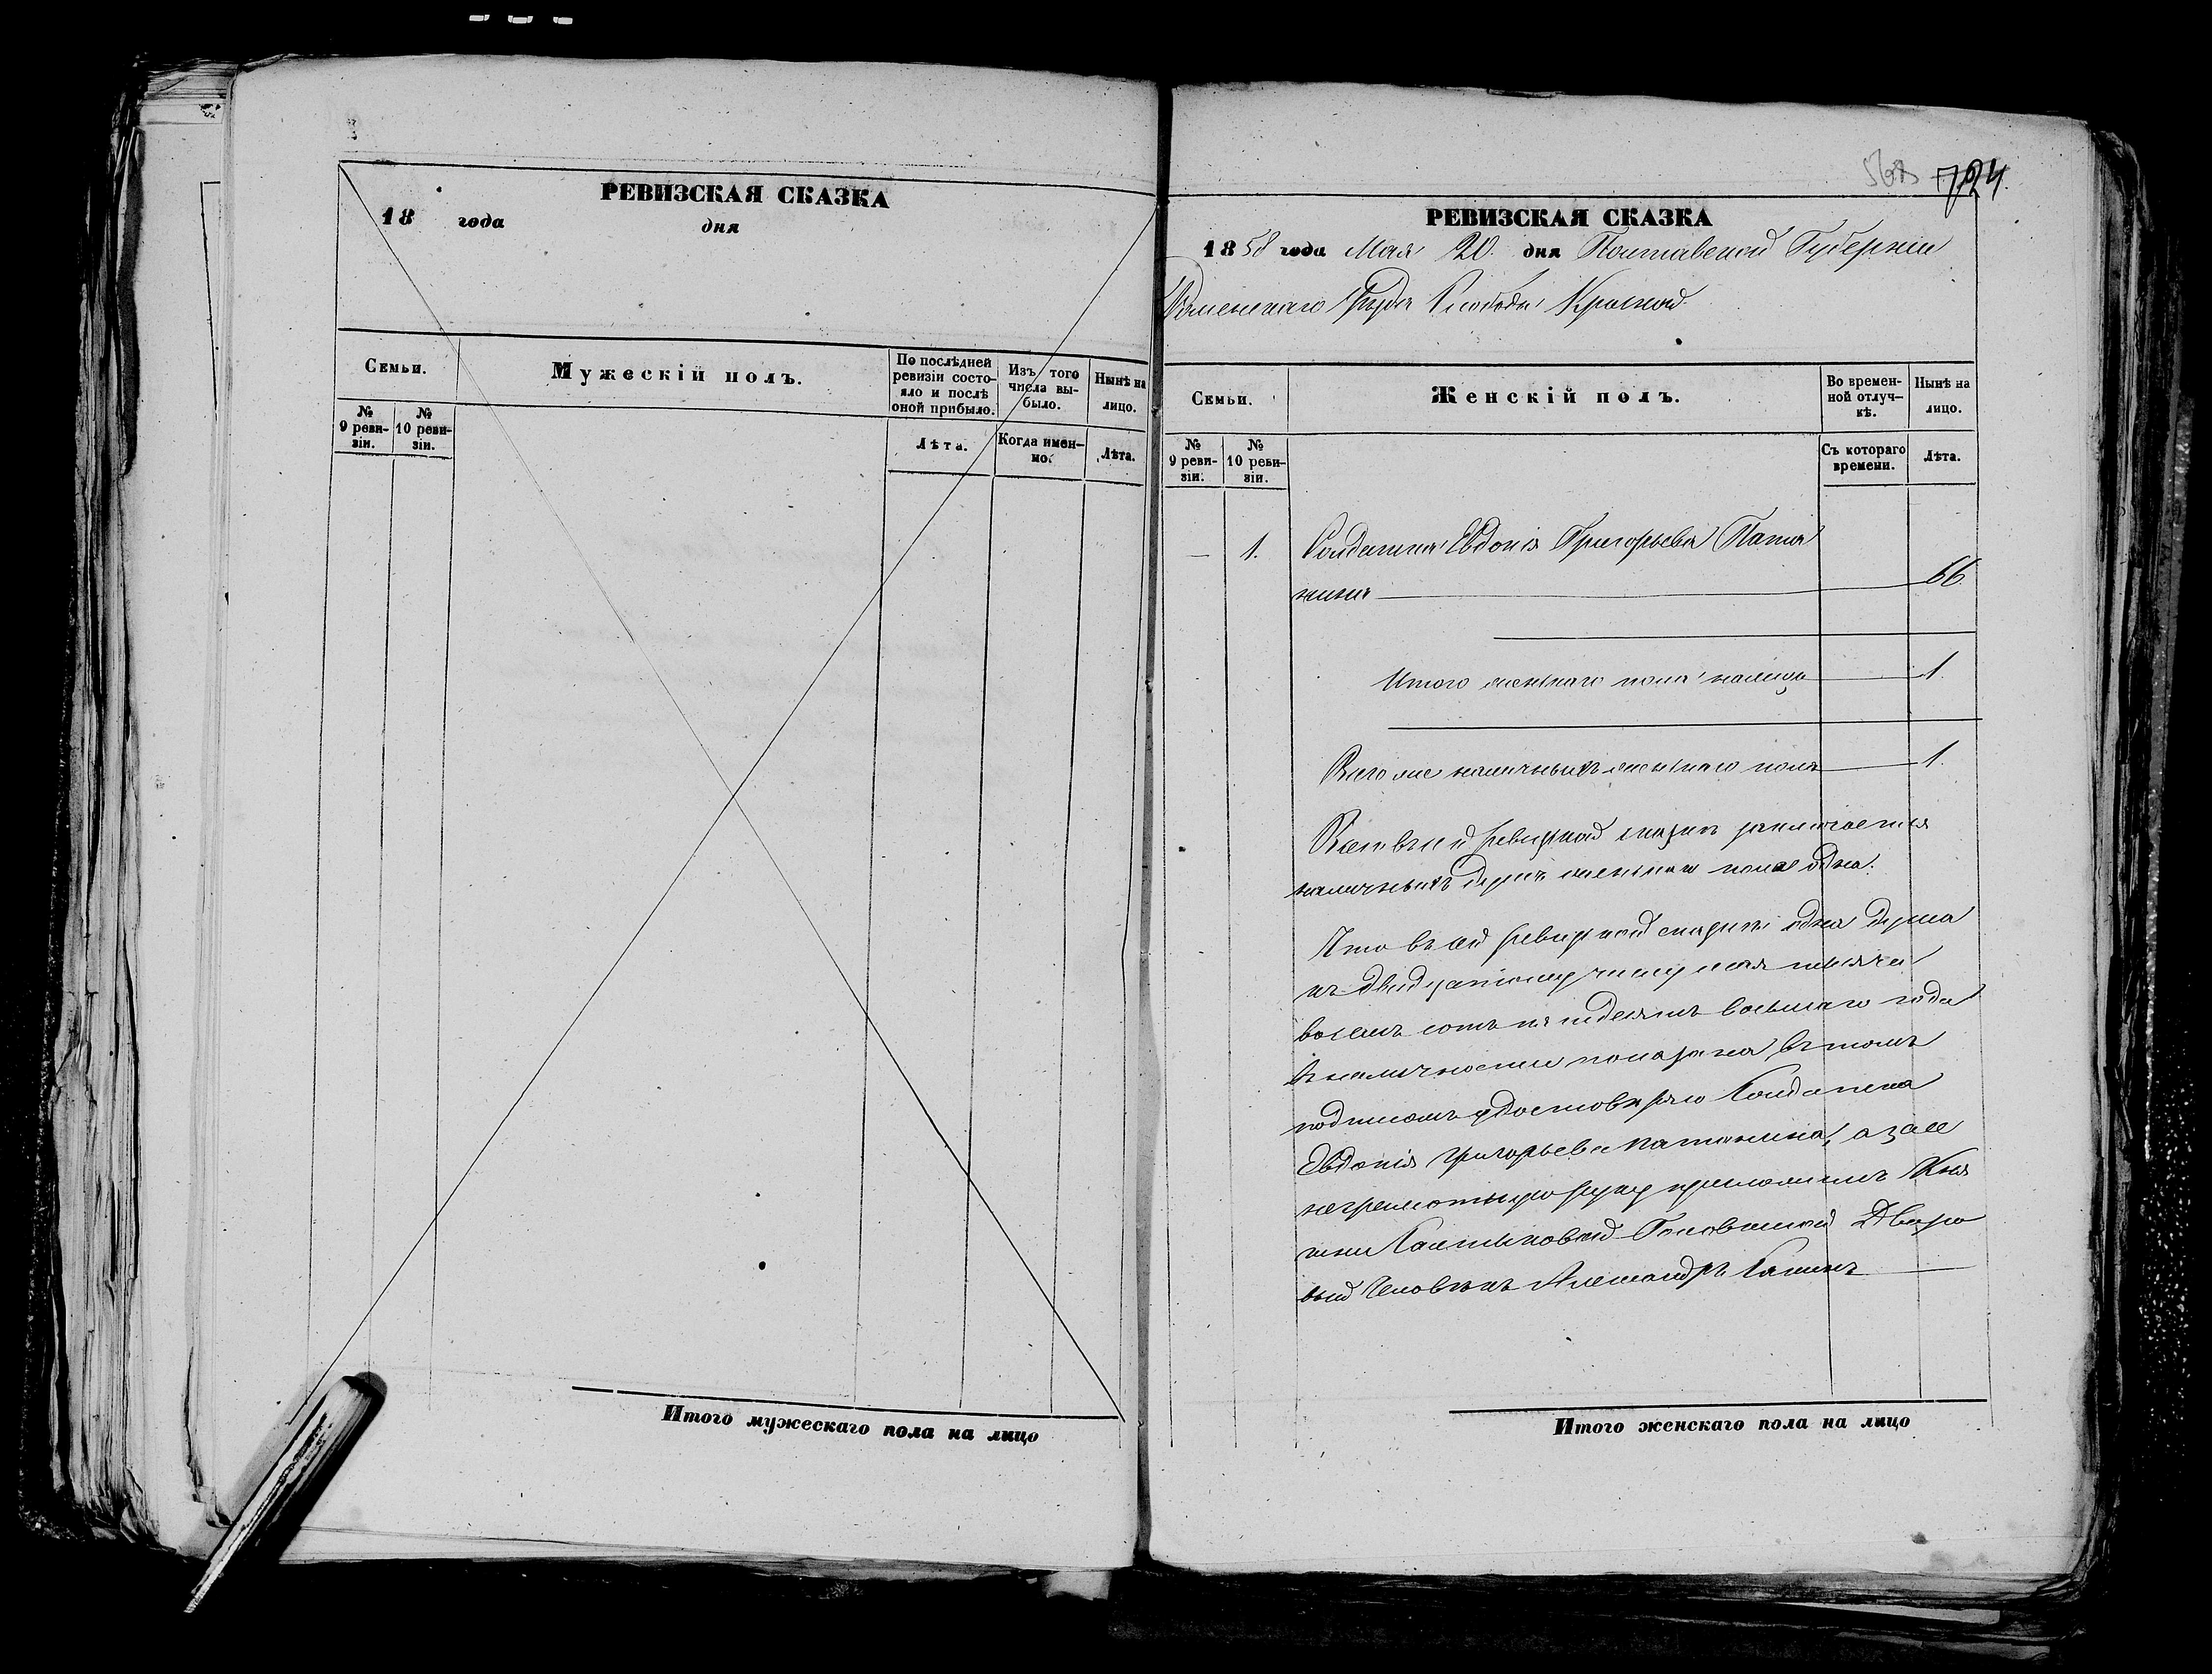 РЕВИЗСКАЯ СКАЗКА
18 года дня
Семьи.
Мужескій полъ.
По послѣдней ревизіи состояло и послѣ оной прибыло.
Изъ того числа выбыло.
Нынѣ на лицо.
№ 9 ревизіи.
№ 10 ревизіи.
Лѣта.
Когда именно.
Лѣта.
Итого мужескаго пола на лицо
724.
РЕВИЗСКАЯ СКАЗКА
1858 года Мая 20. дня Полтавской Губерніи
Роменскаго уѣзда Слободы Красной
Семьи.
Женскій полъ.
Во временной отлучкѣ.
Нынѣ на лицо.
№ 9 ревизіи.
№ 10 ревизіи.
Съ котораго времени.
Лѣта.
— 1. Солдатка Евдокія Григорьева
66.
Итого женскаго пола налицо 1.
Всего же наличныхъ женскаго пола 1.
Всего въ сей ревизской сказкѣ заключается
наличныхъ душъ женскаго пола одна.
Что въ сей ревизской сказкѣ одна душа
къ двадцатому числу мая тысяча
восемь сотъ пятдесятъ восьмаго года
въ наличности показана въ томъ
подписомъ удостовѣряю Солдатка
Евдокія Григорьева а за ее
неграмотную руку приложилъ Кня
гини Дворо
вый Человѣкъ Александръ
Итого женскаго пола на лицо